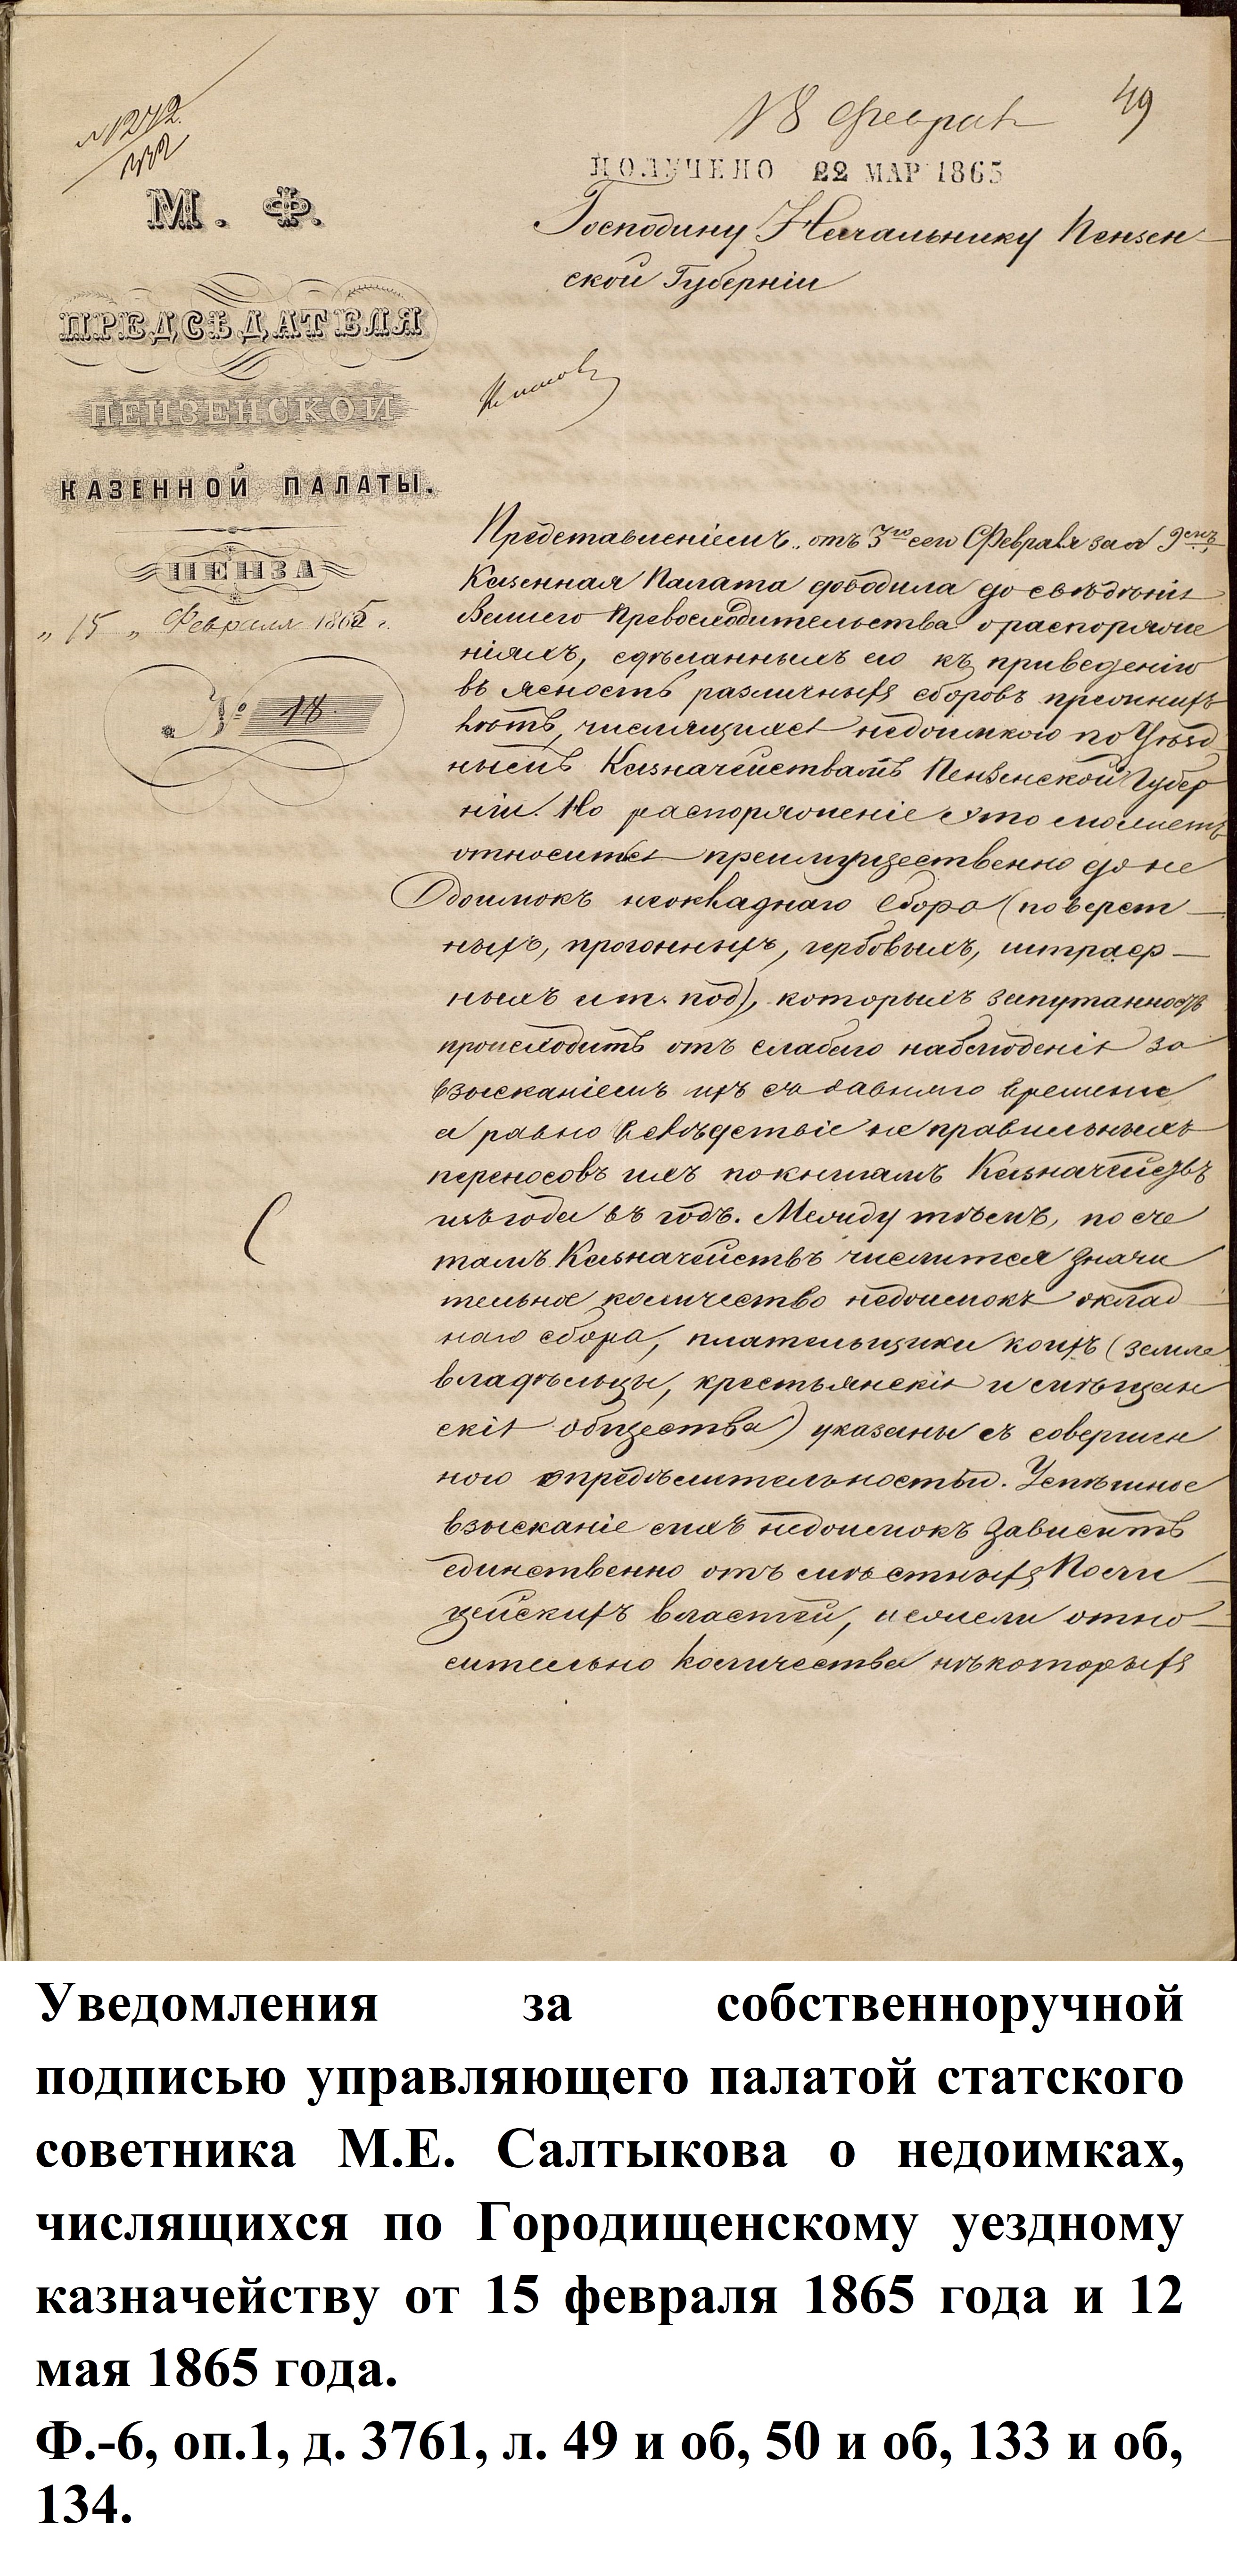 № 1242
49
18 Февраля
ПОЛУЧЕНО 22 МАР 1865
М. Ф.
ПРЕДСѢДАТЕЛЯ
ПЕНЗЕНСКОЙ
КАЗЕННОЙ ПАЛАТЫ.
ПЕНЗА
„ 15 „ Февраля 1865 г.
№ 18
Господину Начальнику Пензен-
ской Губерніи
Представленіемъ отъ 3го сего Февраля за №
Казенная Палата доводила до свѣдѣнія
Вашего Превосходительства о распоряже
ніяхъ, сдѣланныхъ ею къ приведенію
въ ясность различныхъ сборовъ прежнихъ
лѣтъ, числящихся недоимкою по Уѣзд
нымъ Казначействамъ Пензенской Губер
ніи. Но распоряженіе это можетъ
относится преимущественно до не
доимокъ неокладнаго сбора (поверст-
ныхъ, прогонныхъ, гербовыхъ, штраф-
ныхъ и т. под), которыхъ запутанность
происходитъ отъ слабаго наблюденія за
взысканіемъ ихъ съ давняго времени
а равно вслѣдствіе не правильныхъ
переносовъ ихъ по книгамъ Казначействъ
изъ года въ годъ. Между тѣмъ, по сче
тамъ Казначействъ числится значи
тельное количество недоимокъ оклад-
наго сбора, плательщики коихъ (земле
владѣльцы, крестьянскія и мѣщан
скія общества) указаны съ совершен
ною опредѣлительностью. Успѣшное
взысканіе сихъ недоимокъ зависитъ
единственно отъ мѣстныхъ Поли-
цейскихъ властей, и ежели отно-
сительно количества нѣкоторыхъ
Уведомления за собственноручной
подписью управляющего палатой статского
советника М.Е. Салтыкова о недоимках,
числящихся по Городищенскому уездному
казначейству от 15 февраля 1865 года и 12
мая 1865 года.
Ф.-6, оп.1, д. 3761, л. 49 и об, 50 и об, 133 и об,
134.